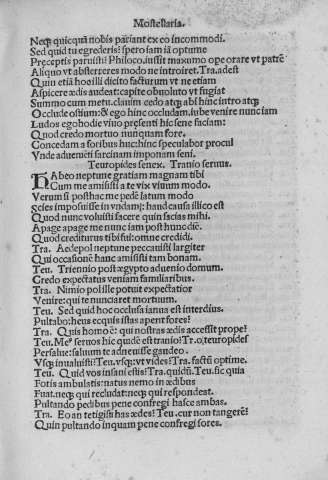 Mostellaria.
Neq; quicquā nobis pariant ex eo incommodi.
Sed quid tu egrederis? spero iam iā optume
Pręceptis paruisti? Philoco. iussit maximo ope orare vt patrē
Aliquo vt absterreres modo ne introiret. Tra. adest
Quin etiā hoc illi dicito facturum vt ne etiam
Aspicere ędis audeat: capite obuoluto vt fugiat
Summo cum metu. clauim cedo atq; abi hinc intro atq;
Occlude ostium: & ego hinc occludam. iube venire nunc iam
Ludos ego hodie viuo pręsenti hic sene faciam:
Quod credo mortuo nunquam fore.
Concedam a foribus huc: hinc speculabor procul
Vnde aduenēti sarcinam imponam seni.
Teuropides senex. Tranio seruus.
HAbeo neptune gratiam magnam tibi
Cum me amisisti a te vix viuum modo.
Verum si posthac me pedē latum modo
scies imposuisse in vndam: haud causa illico est
Quod nunc voluisti facere quin facias mihi.
Apage apage me nunc iam post hunc diē.
Quod crediturus tibi fui: omne credidi.
Tra. Aedepol neptune peccauisti largiter
Qui occasionē hanc amisisti tam bonam.
Teu. Triennio post ęgypto aduenio domum.
Credo expectatus veniam familiaribus.
Tra. Nimio pol ille potuit expectatior
Venire: qui te nunciaret mortuum.
Teu. Sed quid hoc occlusa ianua est interdius.
Pultabo: heus ecquis istas aperit fores?
Tra. Quis homo ē: qui nostras ędis accessit prope?
Teu. Meus seruos hic quidē est tranio? Tr. o teuropides
Persalue: saluum te aduenisse gaudeo.
Vsq; inualuisti? Teu. vsq;: vt vides? Tra. factū optime.
Teu. Quid vos insani estis? Tra. quidū? Teu. sic quia
Foris ambulatis: natus nemo in ędibus
Seruat. neq; qui recludat: neq; qui respondeat.
Pultando pedibus pene confregi hasce ambas.
Tra. Eo an tetigisti has ędes? Teu. cur non tangerē?
Quin pultando inquam pene confregi fores.